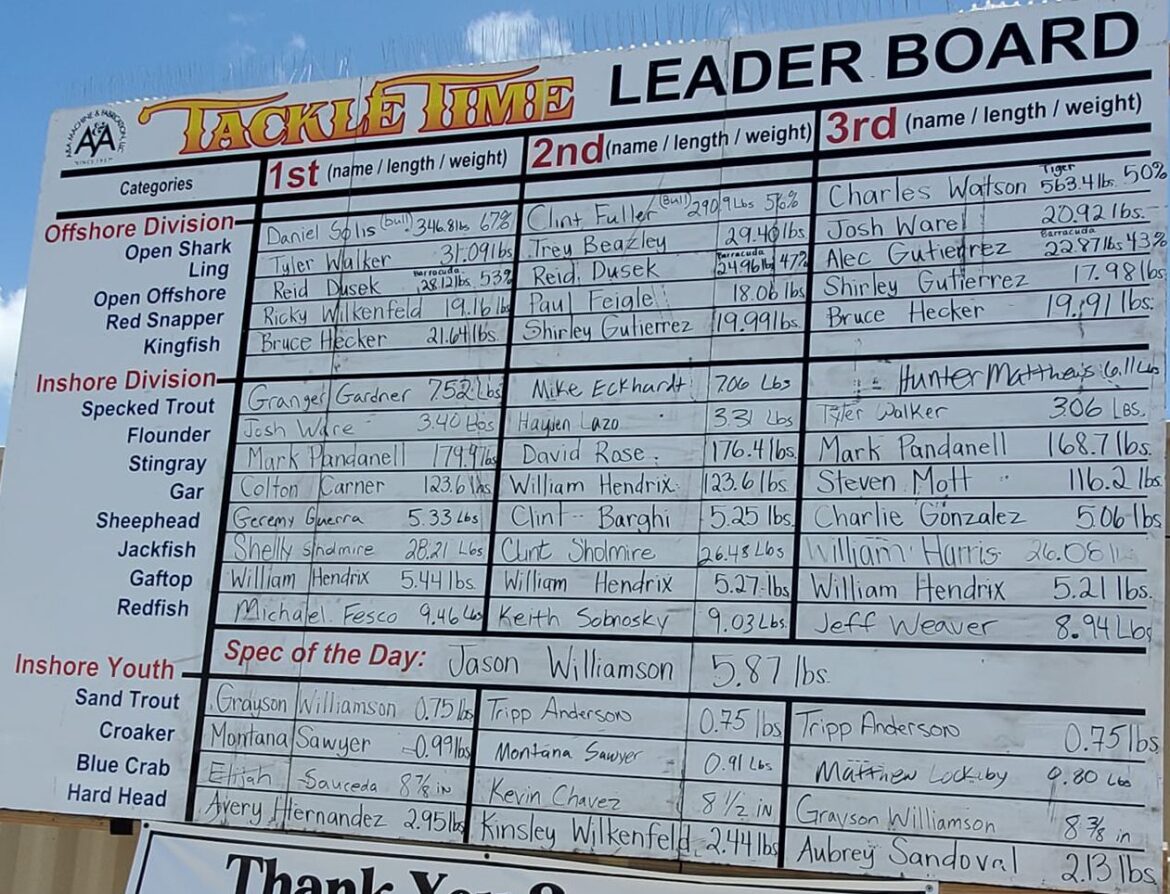 TACKLE TIME LEADER BOARD
A&A MACHINE & FABRICATION, LLC
Categories 1st (name / length / weight) 2nd (name / length / weight) 3rd (name / length / weight)
Offshore Division
Open Shark Daniel Solis (Bull) 346.8lbs 67% Clint Fuller (Bull) 290.9Lbs 56% Charles Watson Tiger 563.4lbs. 50%
Ling Tyler Walker 31.09lbs Trey Beazley 29.40lbs Josh Ware 20.92lbs.
Open Offshore Reid Dusek Barracuda 28.12lbs. 53% Reid Dusek Barracuda 24.96lbs 47% Alec Gutierrez Barracuda 22.87lbs 43%
Red Snapper Ricky Wilkenfeld 19.16 lbs Paul Feigle 18.06 lbs Shirley Gutierrez 17.98lbs
Kingfish Bruce Hecker 21.64lbs. Shirley Gutierrez 19.99lbs. Bruce Hecker 19.91 lbs.
Inshore Division
Specked Trout Granger Gardner 7.52Lbs Mike Eckhardt 7.06 Lbs Hunter Mattheis 6.11 Lbs
Flounder Josh Ware 3.40 Lbs Hayden Lazo 3.31 Lbs Tyler Walker 3.06 LBS.
Stingray Mark Pandanell 179.9lbs David Rose 176.4lbs. Mark Pandanell 168.7lbs.
Gar Colton Carner 123.6 lbs William Hendrix 123.6 lbs. Steven Mott 116.2 lbs.
Sheephead Geremy Guerra 5.33 Lbs Clint Barghi 5.25 lbs. Charlie Gonzalez 5.06 lbs
Jackfish Shelly Sholmire 28.21 Lbs Clint Sholmire 26.48 Lbs William Harris 26.08
Gaftop William Hendrix 5.44lbs. William Hendrix 5.27 lbs William Hendrix 5.21 lbs.
Redfish Michael Fesco 9.46 Lbs Keith Sobnosky 9.03 Lbs. Jeff Weaver 8.94 Lbs
Spec of the Day: Jason Williamson 5.87 lbs.
Inshore Youth
Sand Trout Grayson Williamson 0.75 lbs Tripp Anderson 0.75 lbs Tripp Anderson 0.75 lbs
Croaker Montana Sawyer 0.99lbs Montana Sawyer 0.91 Lbs Matthew Lockiby 0.80 Lbs
Blue Crab Elijah Sauceda 8 7/8 in Kevin Chavez 8 1/2 in Grayson Williamson 8 3/8 in
Hard Head Avery Hernandez 2.95lbs Kinsley Wilkenfeld 2.44 lbs Aubrey Sandoval 2.13 lbs
Thank You